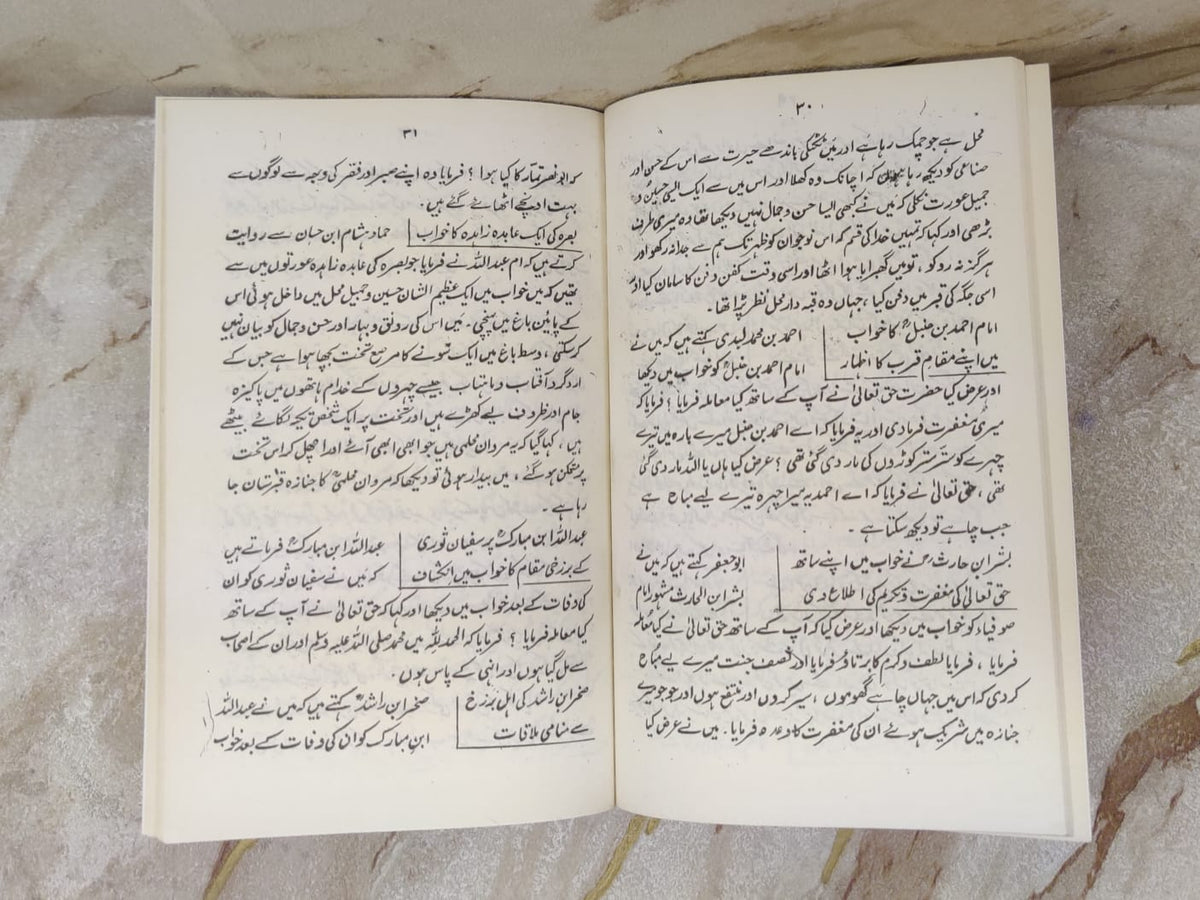 ۳۰
محل ہے جو چمک رہا ہے اور میں ٹکٹکی باندھے حیرت سے اس کے حسن اور
صناعی کو دیکھ رہا ہوں کہ اچانک وہ کھلا اور اس میں سے ایک ایسی حسین و
جمیل عورت نکلی کہ میں نے کبھی ایسا حسن و جمال نہیں دیکھا تھا وہ میری طرف
بڑھی اور کہا کہ تمہیں خدا کی قسم کہ اس نوجوان کو ظہر تک ہم سے جدا نہ رکھو اور
ہرگز نہ روکو ، تو میں گھبرایا ہوا اٹھا اور اسی وقت کفن دفن کا سامان کیا اور
اسی جگہ کی قبر میں دفن کیا ، جہاں وہ قبہ دار محل نظر پڑا تھا۔
امام احمد بن حنبلؒ کا خواب
میں اپنے مقامِ قرب کا اظہار
احمد بن محمد لبدی کہتے ہیں کہ میں نے
امام احمد بن حنبلؒ کو خواب میں دیکھا
اور عرض کیا حضرت حق تعالیٰ نے آپ کے ساتھ کیا معاملہ فرمایا ؟ فرمایا کہ
میری مغفرت فرمادی اور یہ فرمایا کہ اے احمد بن حنبل میرے بارہ میں تیرے
چہرے کو ستر ستر کوڑوں کی مار دی گئی تھی ؟ عرض کیا ہاں یا اللہ مار دی گئی
تھی ، حق تعالیٰ نے فرمایا کہ اے احمد یہ میرا چہرہ تیرے لیے مباح ہے
جب چاہے تو دیکھ سکتا ہے ۔
بشر ابن حارثؒ نے خواب میں اپنے ساتھ
حق تعالیٰ کی مغفرت و تکریم کی اطلاع دی
ابو جعفر کہتے ہیں کہ میں نے
بشر ابن الحارث مشہور امام
صوفیاء کو خواب میں دیکھا اور عرض کیا کہ آپ کے ساتھ حق تعالیٰ نے کیا معاملہ
فرمایا ، فرمایا لطف و کرم کا برتاؤ فرمایا اور نصف جنت میرے لیے مباح
کر دی کہ اس میں جہاں چاہے گھوموں ، سیر کروں اور متمتع ہوں اور جو جو میرے
جنازہ میں شریک ہوئے ان کی مغفرت کا وعدہ فرمایا۔ میں نے عرض کیا
۳۱
کہ ابو نصر تمار کا کیا ہوا ؟ فرمایا وہ اپنے صبر اور فقر کی وجہ سے لوگوں سے
بہت اونچے اٹھائے گئے ہیں۔
بصرہ کی ایک عابدہ زاہدہ کا خواب
حماد ہشام ابن حسان سے روایت
کرتے ہیں کہ ام عبداللہ نے فرمایا جو بصرہ کی عابدہ زاہدہ عورتوں میں سے
تھیں کہ میں خواب میں ایک عظیم الشان حسین و جمیل محل میں داخل ہوئی اس
کے پائیں باغ میں پہنچی ۔ میں اس کی رونق و بہار اور حسن و جمال کو بیان نہیں
کر سکتی ، وسط باغ میں ایک سونے کا مرصع تخت بچھا ہوا ہے جس کے
ارد گرد آفتاب و ماہتاب جیسے چہروں کے خدام ہاتھوں میں پاکیزہ
جام اور ظروف لیے کھڑے ہیں اور تخت پر ایک شخص تکیہ لگائے بیٹھے
ہیں ، کہا گیا کہ یہ مروان محلمی ہیں جو ابھی ابھی آئے اور اچھل کر اس تخت
پر متمکن ہو گئے ، میں بیدار ہوئی تو دیکھا کہ مروان محلمیؒ کا جنازہ قبرستان جا
رہا ہے ۔
عبداللہ ابن مبارکؒ پر سفیان ثوری
کے برزخی مقام کا خواب میں انکشاف
عبداللہ ابن مبارکؒ فرماتے ہیں
کہ میں نے سفیان ثوری کو ان
کی وفات کے بعد خواب میں دیکھا اور کہا کہ حق تعالیٰ نے آپ کے ساتھ
کیا معاملہ فرمایا ؟ فرمایا کہ الحمد للہ میں محمد صلی اللہ علیہ وسلم اور ان کے اصحاب
سے مل گیا ہوں اور انہی کے پاس ہوں ۔
صخر ابن راشد کی اہل برزخ
سے منامی ملاقات
صخر ابن راشدؒ کہتے ہیں کہ میں نے عبداللہ
ابن مبارک کو ان کی وفات کے بعد خواب